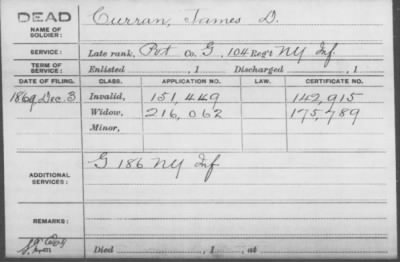 DEAD
NAME OF SOLDIER: Curran, James D.
SERVICE: Late rank, Pvt Co. G, 104 Reg't NY Inf.
TERM OF SERVICE: Enlisted , 1 Discharged , 1
DATE OF FILING. CLASS. APPLICATION NO. LAW. CERTIFICATE NO.
1869, Dec. 3 Invalid, 151,449 142,915
Widow, 216,062 175,789
Minor,
ADDITIONAL SERVICES: G 186 NY Inf
REMARKS:
Died , 1 , at